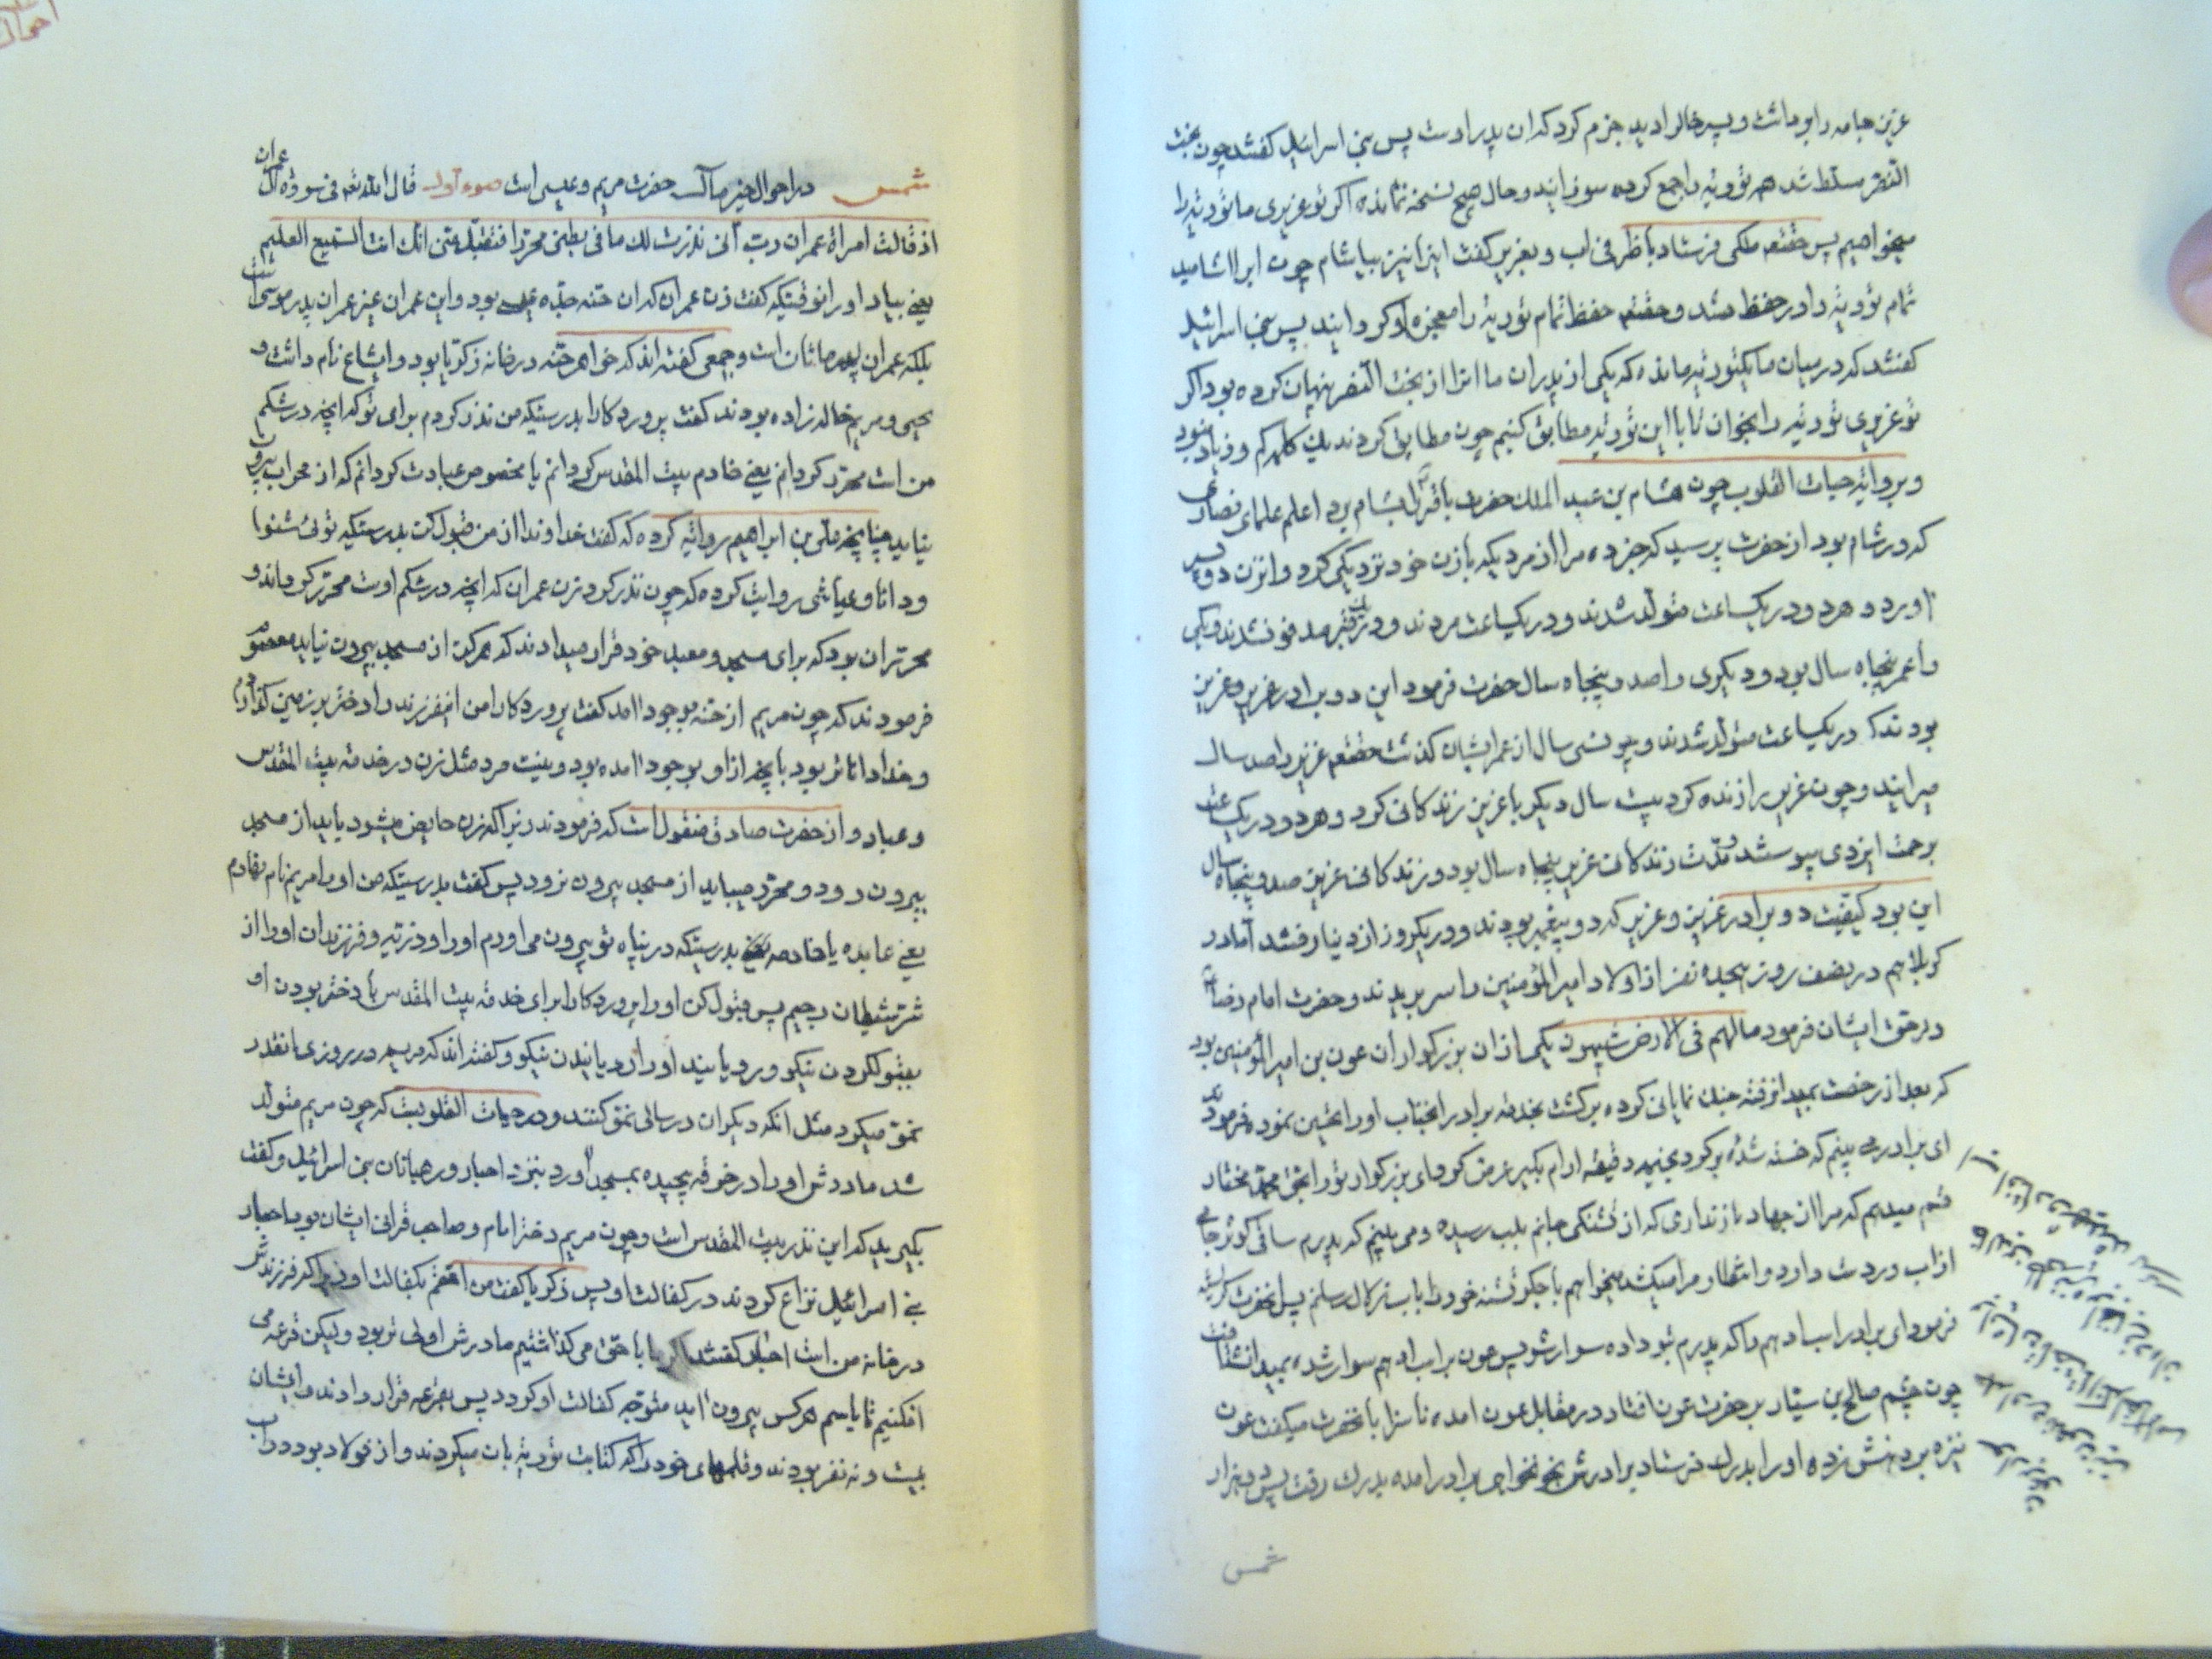 عزیز جامه را بوماثت و پسر خاله را دید جزم کرد که ان پدر اوست پس بنی اسرائیل کفتند چون بخت
النصر مسلط شد همه تورته را جمع کرده سوزانید و حال هیچ نسخه نمانده اکر تو عزیری ما تورته را
میخواهیم پس حقتعه ملکی فرستاد با ظرفی اب و بعزیر کفت این را نیز بیاشام چون انرا اشامید
تمام تورته را در حفظ شد و حقتعه حفظ تمام تورته را معجزه او کردانید پس بنی اسرائیل
کفتند که در میان ما یکتورته مانده که یکی از پدران ما انرا از بخت النصر پنهان کرده بود اکر
تو عزیری تورته را بخوان تا با این تورته مطابق کنیم چون مطابق کردند یک کلمه کم و زیاد نبود
و بروایة حیات القلوب چون هشام بن عبد الملک حضرت باقر را بشام برد اعلم علمای نصاری
که در شام بود از حضرت پرسید که خبر ده مرا از مردیکه بازن خود نزدیکی کرد و انزن دو پسر
اورد و هر دو در یکساعت متولد شدند و در یکساعت مردند و در یک قبر مدفون شدند و یکی
را عمر پنجاه سال بود و دیکری را صد و پنجاه سال حضرت فرمود این دو برادر عزیر و عزیز
بودند که در یکساعت متولد شدند و چون سی سال از عمر ایشان کذشت حقتعه عزیر را صد سال
میرانید و چون عزیر را زنده کرد بیست سال دیکر با عزیز زندکانی کرد و هر دو در یک ساعت
برحمت ایزدی پیوستند و مدت زندکانی عزیر پنجاه سال بود و زندکانی عزیز صد و پنجاه سال
این بود کیفیت دو برادر عزیز و عزیر که دو پیغمبر بودند و در یکروز از دنیا رفتند اما در
کربلا هم در نصف روز هیجده نفر از اولاد امیر المؤمنین را سر بریدند و حضرت امام رضا
در حق ایشان فرمود مالهم فی الارض شبیهون یکی از ان بزرکواران عون بن امیر المؤمنین بود
که بعد از رخصت بمیدان رفته جنک نمایانی کرده برکشت بخدمة برادر انجناب او را تحسین نموده فرمودند
ای برادر می بینم که خسته شده برکرد بخیمه دقیقه ارام بکیر عرض کرد ای بزرکوار تو را بحق محمد مختار
قسم میدهم که مرا از جهاد باز نداری که از تشنکی جانم بلب رسیده و می بینم که پدرم ساقی کوثر جامی
از اب در دست دارد و انتظار مرا میکشد میخواهم با جکر تشنه خود را باب زلال رسانم پس انحضرت کریسته
فرمود ای برادر اسب ادهم را که پدرم بتو داده سوار شو پس عون بر اسب ادهم سوار شده بمیدان شتافت
چون چشم صالح بن سیار بر حضرت عون افتاد در مقابل عون امده ناسزا بانحضرت میکفت عون
نیزه بردهنش زده او را بدرک فرستاد برادرش بخونخواهی برادر امده بدرک رفت پس دو هزار
شمس
شمس در احوال خیر مآل حضرت مریم و عیسی است ضوء اول قال الله تعه فی سورة ال عمران
اذ قالت امراة عمران رب انی نذرت لک ما فی بطنی محررا فتقبل منی انک انت السمیع العلیم
یعنی بیاد اور انوقتیکه کفت زن عمران که ان حنه جده عیسی بود و این عمران غیر عمران پدر موسی است
بلکه عمران پسر ماثان است و جمعی کفته اند که خواهر حنه در خانه زکریا بود و ایشاع نام داشت و
یحیی و مریم خاله زاده بودند کفت پروردکارا بدرستیکه من نذر کردم برای تو که انچه در شکم
من است محرر کردانم یعنی خادم بیت المقدس کردانم یا مخصوص عبادت کردانم که از محراب بیرون
نیاید چنانچه علی بن ابراهیم روایة کرده که کفت خداوندا از من قبول کن بدرستیکه توئی شنوا
و دانا و عیاشی روایت کرده که چون نذر کرد زن عمران که انچه در شکم اوست محرر کرداند و
محرر ان بود که برای مسجد و معبد خود قرار میدادند که هرکز از مسجد بیرون نیاید معصوم
فرمودند که چون مریم از حنه بوجود امد کفت پروردکارا من این فرزند را دختر بر زمین کذاردم
و خدا داناتر بود بانچه از او بوجود امده بود و نیست مرد مثل زن در خدمة بیت المقدس
و عباد و از حضرت صادق منقول است که فرمودند زیرا که زن حایض میشود باید از مسجد
بیرون رود و محرر میباید از مسجد بیرون نرود پس کفت بدرستیکه من او را مریم نام نهادم
یعنی عابده یا خادمه بدرستیکه در پناه تو بیرون می اورم او را و ذریه و فرزندان او را از
شر شیطان رجیم پس قبول کن او را پروردکارا برای خدمة بیت المقدس با دختر بودن او
بقبول کردن نیکو و رویانید او را رویانیدن نیکو و کفته اند که مریم در روزی انقدر
نمو میکرد مثل انکه دیکران در سالی نمو کنند و در حیات القلوبست که چون مریم متولد
شد مادرش او را در خرقه پیچیده بمسجد اورد بنزد احبار و رهبانان بنی اسرائیل و کفت
بکیرید که این نذر بیت المقدس است و چون مریم دختر امام و صاحب قربانی ایشان بود احبار
بنی اسرائیل نزاع کردند در کفالت او پس زکریا کفت من احقم بکفالت او زیرا که فرزندش
در خانه من است احبار کفتند اکر ما با حق می کذاشتیم مادرش اولی تر بود و لیکن قرعه می
افکنیم تا باسم هر کس بیرون اید متوجه کفالت او کردد پس بقرعه قرار دادند و ایشان
بیست و نه نفر بودند و قلمهای خود را که کتابت تورته بان میکردند و از فولاد بود در اب